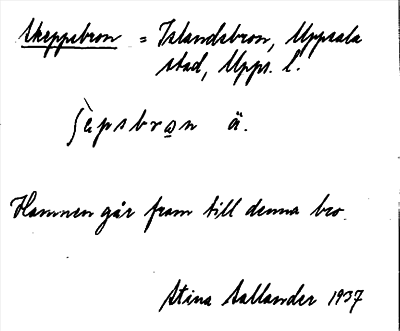 Skeppsbron = Islandsbron, Uppsala
stad, Upps. l.
ʃèpsbrɷn ä.
Hamnen går fram till denna bro.
Stina Sallander 1937